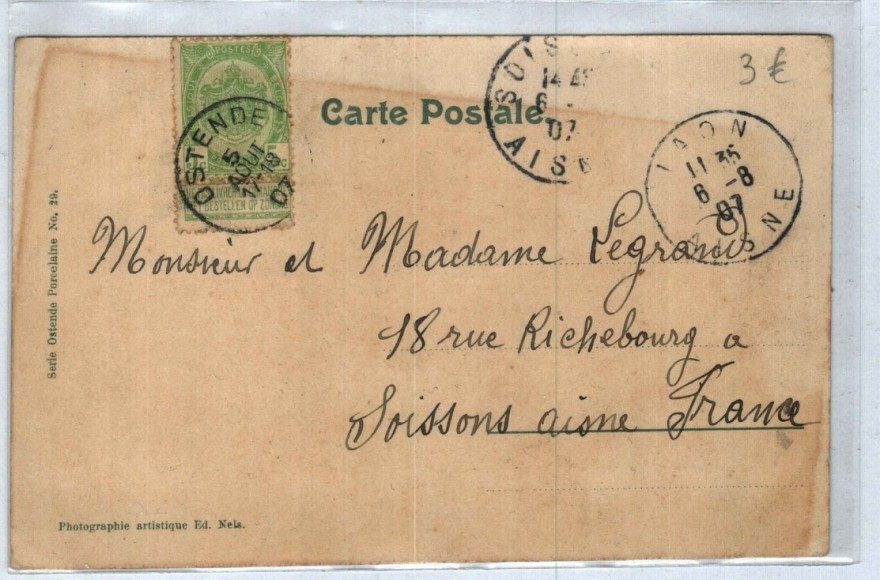 POSTES
5
c
BESTELLEN OP ZON
OSTENDE
5
AOUT
17-18
07
Carte Postale.
SOISS
14 4
6 -
07
AISN
3 €
LAON
11 35
6 -8
07
AISNE
Monsieur et Madame Legrand
18 rue Richebourg a
Soissons aisne France
Serie Ostende Porcelaine No. 29.
Photographie artistique Ed. Nels.